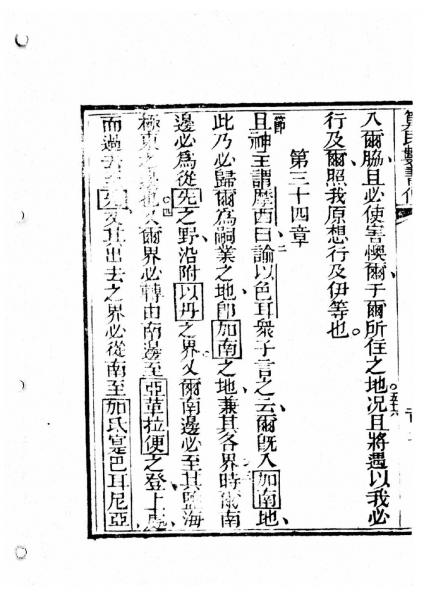 算民數書傳
入爾脇且必使害懊爾于爾所住之地五十六況且將遇以我必
行及爾照我原想行及伊等也
第三十四章
一節且神主謂摩西曰二諭以色耳衆子言之云爾旣入加南地
此乃必歸爾爲嗣業之地卽加南之地兼其各界三時爾南
邊必爲從先之野沿附以丹之界又爾南邊必至其鹽海
極東之四又爾界必轉由南邊至亞革拉便之登上處
而過去至先又其出去之界必從南至加氏寔巴耳尼亞